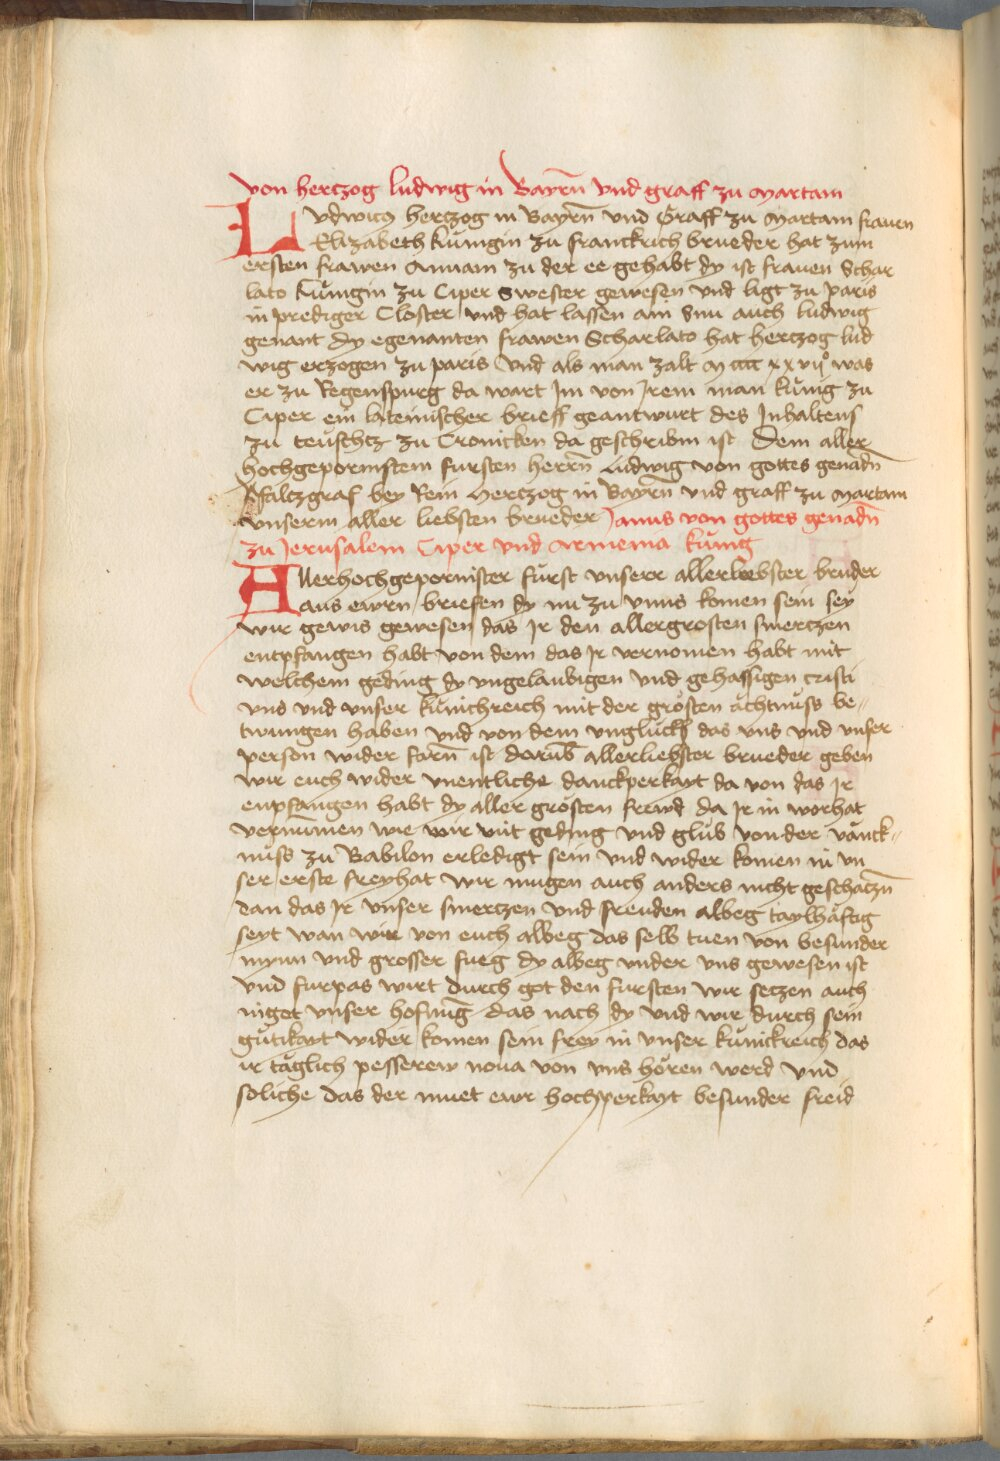 von hertzog ludwig in Bayrn̄ vnd graff zu Martam
Lvdwicg hertzog in Bayrn̄ vnd Graff zu Martam frauen
Elizabeth kůnigin zu franckrich brueder hat zum
ersten frawen Annam zu der ee gehabt dy ist frauen Schar
lato kůnigin zu Ciper Swester gewesen vnd ligt zu paris
in prediger Closter vnd hat lassen ain sun auch ludwig
genant dy egenanten frawen Scharlato hat hertzog lud
wig erzogen zu paris vnd als man zalt M cccc xxvijº was
er zu Regenspurg da wart Jm von Jrem man kůnig zu
Ciper ein lateinischer brieff geantwurt des Jnhaltens
zu teuschtz zu Cronicken da geschribm ist Dem aller
hochgepornistem fursten herrn̄ Ludwig von gottes genadn̄
Pfaltzgraf bey Rein Hertzog in Bayrn̄ vnd graff zu Martam
vnserm aller liebsten brueder Janus von gottes genadn̄
zu Jerusalem Ciper vnd Armenia kůnig
Allerhochgepornister furst vnserr allerliebster bruder
aus ewrn briefen dy nu zu vnns komen sein sey
wir gewis gewesen das Jr den allergrosten smertzen
entpfangen habt von dem das Jr vernomen habt mit
welchem geding dy vngelaubigen vnd gehassigen cristi
vns vnd vnser kůnichreich mit der grösten ächtnuss be-
twungen haben vnd von dem vnglucks das vns vnd vnser
person wider farn̄ ist dorūb allerliebster brueder geben
wir euch wider vnentliche danckperkayt da von das Jr
enpfangen habt dy aller grösten frewd da Jr in worhat
vernūmen wie wir mit geding vnd glüb von der vänck-
nuss zu Babilon erledigt sein vnd wider komen in vn
ser erste freyhat wir mugen auch anders nicht geschatzn̄
dan das Jr vnser smertzen vnd freuden albeg taylhäftig
seyt wan wir von euch albeg das selb tuen von besunder
mynn vnd grosser fueg dy albeg vnder vns gewesen ist
vnd furpas wirt durch got den fursten wir setzen auch
in got vnser hofnung das nach dy vnd wir durch sein
gůtikayt wider komen sein frey in vnser kůnickreich das
ir täglich pesserew noua von vns hören werd vnd
soliche das der muet ewr hochperkayt besunder freid